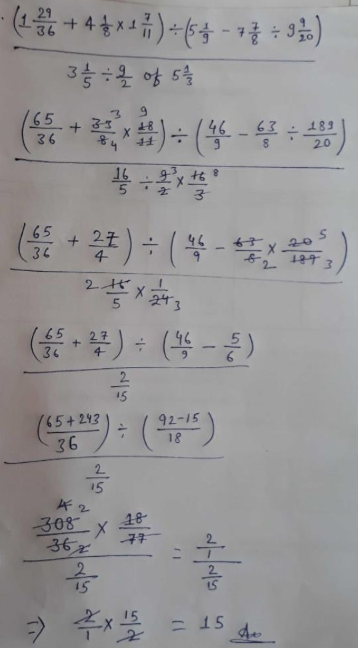 (1 29/36 + 4 1/8 × 1 7/11) ÷ (5 1/9 - 7 7/8 ÷ 9 9/20)
3 1/5 ÷ 9/2 of 5 1/3
(65/36 + 33/8 × 18/11) ÷ (46/9 - 63/8 ÷ 189/20)
3 4 9
16/5 ÷ 9/2 × 16/3
3 8
(65/36 + 27/4) ÷ (46/9 - 63/8 × 20/189)
2 5 3
2 16/5 × 1/24 3
(65/36 + 27/4) ÷ (46/9 - 5/6)
2/15
((65+243)/36) ÷ ((92-15)/18)
2/15
4 2
308/36 × 18/77 = 2/1
2
2/15 2/15
⇒ 2/1 × 15/2 = 15 Ans